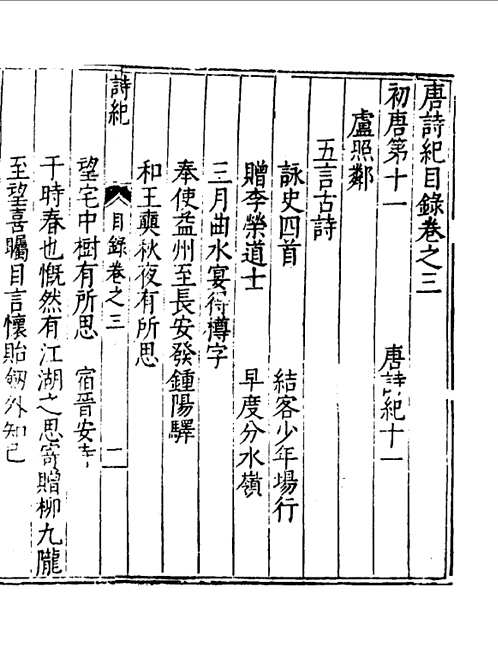 唐詩紀目錄卷之三
初唐第十一　唐詩紀十一
盧照鄰
五言古詩
詠史四首　結客少年場行
贈李榮道士　早度分水嶺
三月曲水宴得樽字
奉使益州至長安發鍾陽驛
和王奭秋夜有所思
詩紀　目錄卷之三　一
望宅中樹有所思　宿晉安寺
于時春也慨然有江湖之思寄贈柳九隴
至望喜矚目言懷貽劒外知己